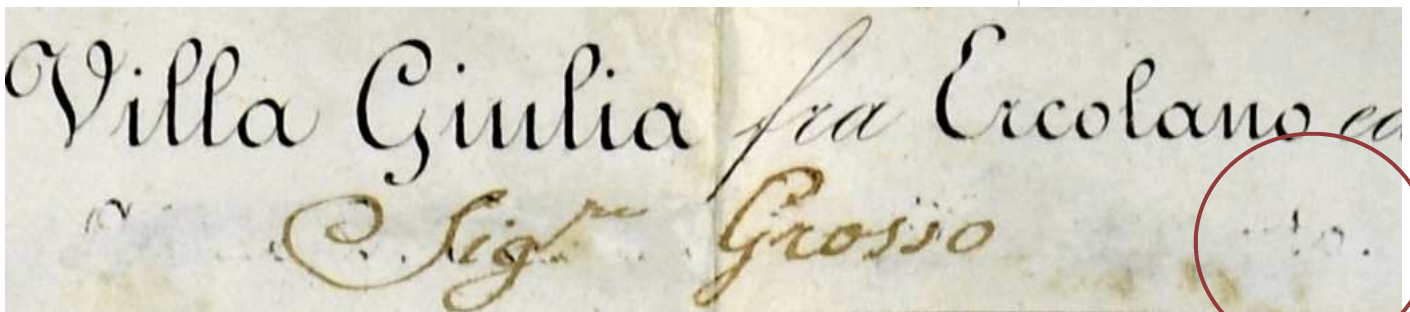 Villa Giulia fra Ercolano ed
Sig.re Grosso